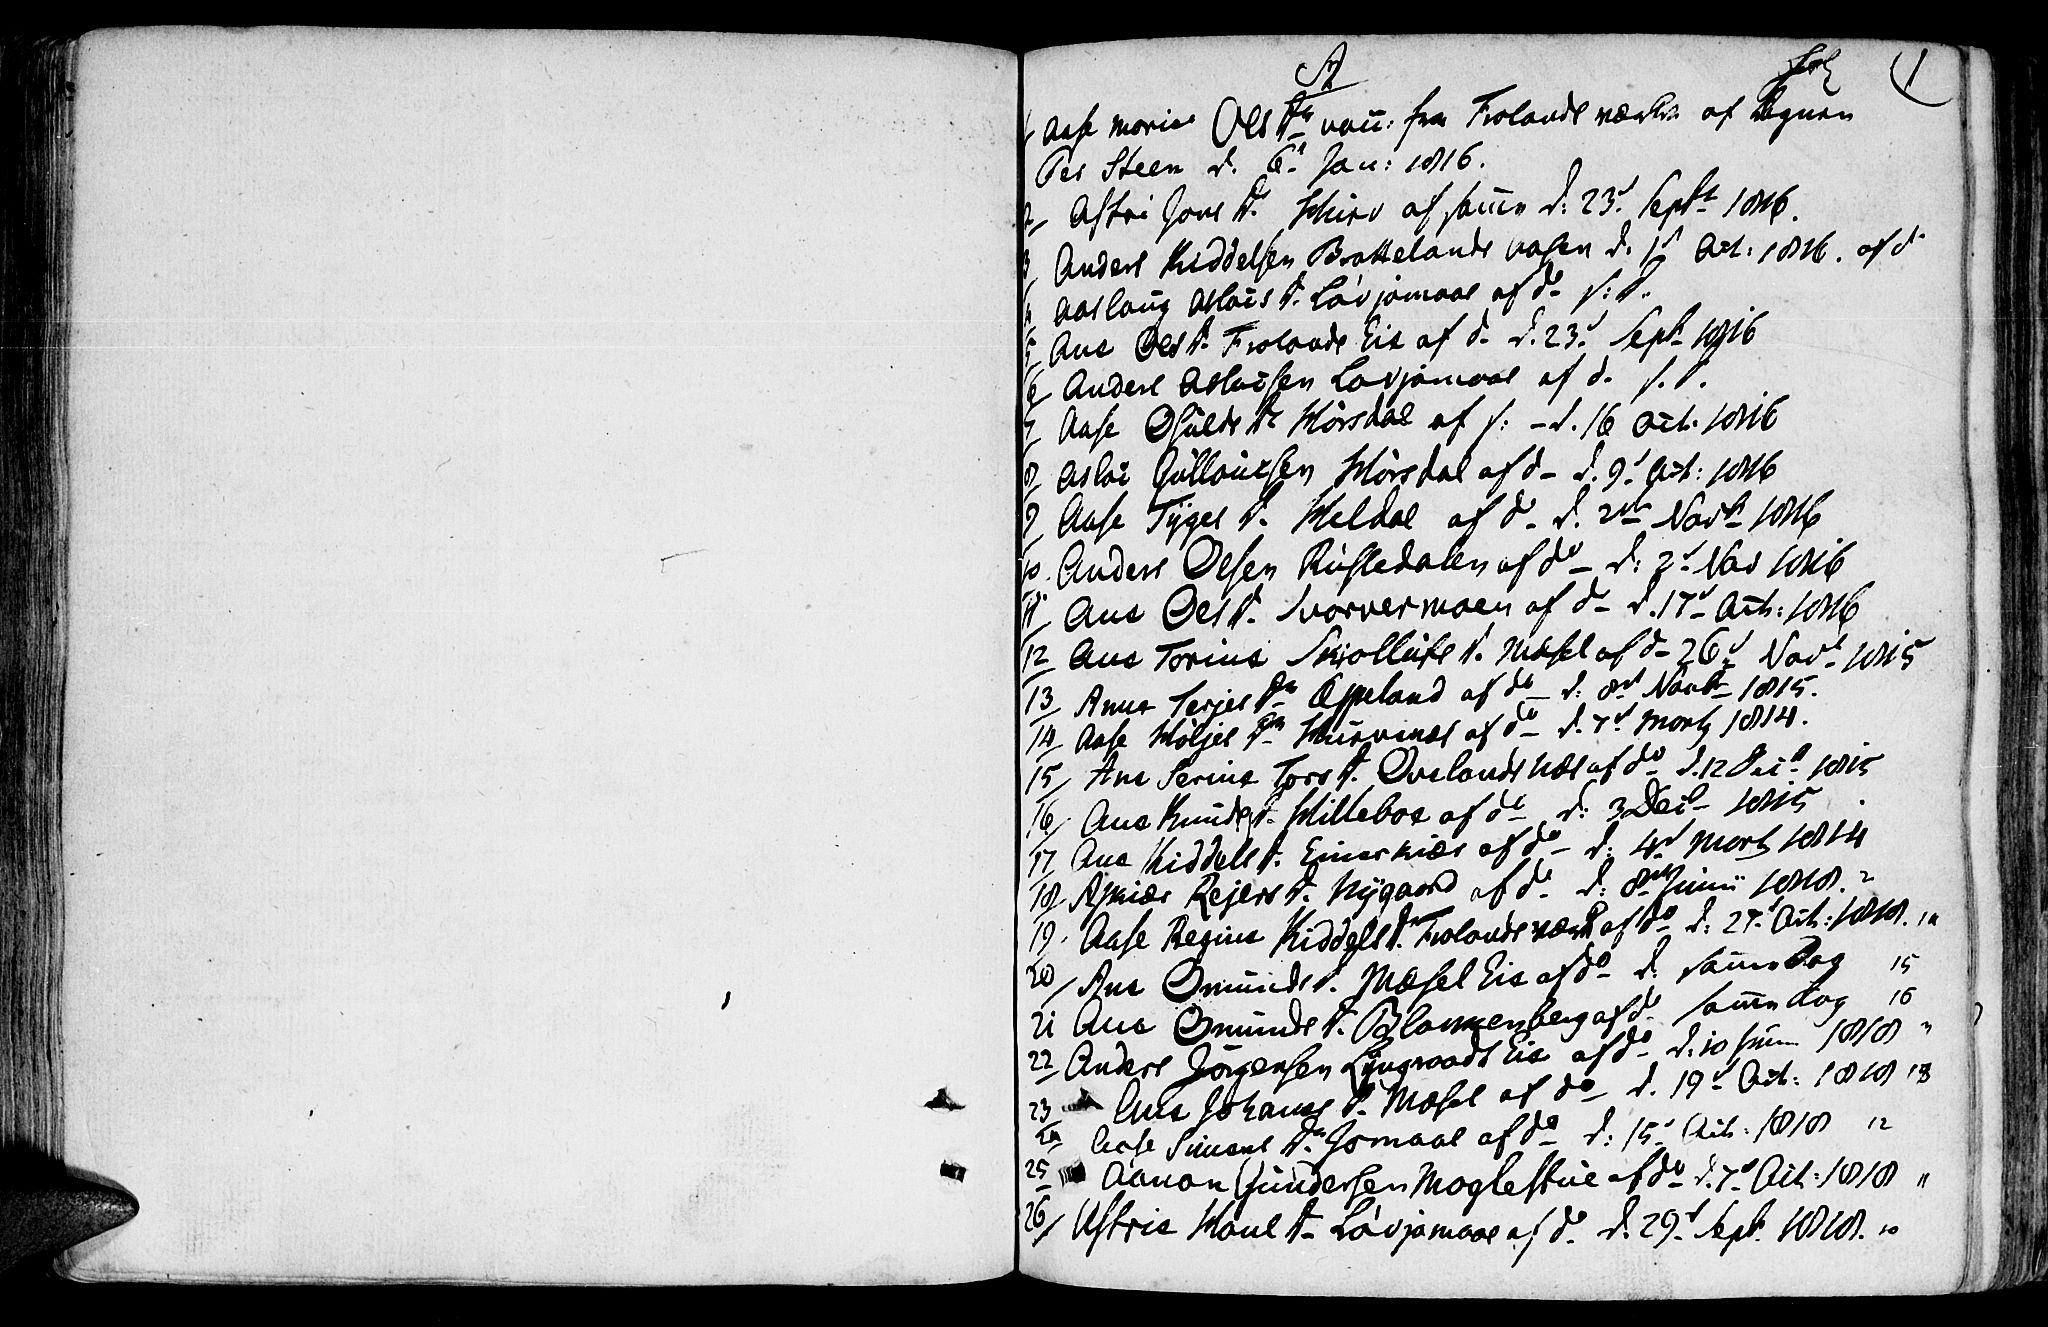 A 1
1/ Aase Marie Ols Dtr vacc: fra Frolands værk af
Per Steen d. 6t Jan: 1816.
2/ Astri Jons D. af samme d: 23d Septr 1816.
3/ Anders Kiddelsen Brattelands d. 1d Oct: 1816. af d
4/ Aaslaug Aslacs D. Lavjomaas af do s: D.
5/ Ane Ols D. Frolands Eie af d- d. 23d Sept 1816
6/ Anders Aslacsen Lavjomaas af d. s. D.
7/ Aase Osulds D. Mørsdal af s: - d. 16 Oct. 1816
8/ Aslac Gullovsen Mørsdal af d- d. 9d Oct: 1816
9/ Aase Tyges D. Heldal af d- d. 2den Novr 1816
10. Anders Olsen Rustedalen af do- d: 2d Nov 1816
11 Ane Ols D. Svarvermoen af d- d. 17d Oct: 1816
12 Ane Torine D. Mæsel af d- 26d Novr 1815
13/ Anne Terjes Dtr Eppeland af do d: 8d Novbr 1815.
14/ Aase Høljes Dtr Hurvenæs af do d. 7d Marts 1814.
15/ Ane Serine Tors D. Ovelands Næs af do d. 12 Decb 1815
16/ Ane Knuds D. Hillebos af do d: 3 Decb 1815
17 Ane Kiddels D. af do- d: 4d Marts 1814
18/ Rejers D. Nygaard af do d: 8de Junii 1818. 2
19. Aase Regine Kiddels D. Frolands værk af do d: 27d Oct: 1818. 14
20/ Ane Omunds D. Mæsel Eie af do d. samme Dag 15
21 Ane Omunds D. Blankenberg af d. samme Dag 16
22 Anders Jørgensen Eie af do d: 10 Juni 1818 "
23 Ane Johannes D. Mæsel af do d. 19d Oct: 1818 13
24 Aase Simens Dtr Jomaas af do d: 15d Oct: 1818 12
25 Aanon Gundersen Moglestue af do d. 7d Oct: 1818 11
26/ Astrie D. Lavjomaas af do d. 29d Sept 1818. 10